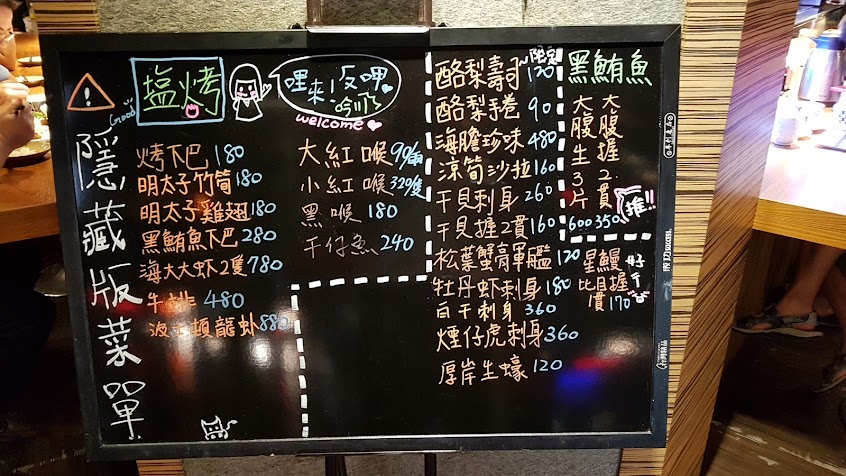 隱藏版菜單
Good
塩烤
烤下巴 180
明太子竹筒 180
明太子雞翅 180
黑鮪魚下巴 280
海大大虾2隻 780
牛排 480
波士頓龍虾 880
哩來!反呷
welcome
大紅喉 99/
小紅喉 320/隻
黑喉 180
午仔魚 240
酪梨壽司 120
限定
酪梨手卷 90
海膽珍味 480
涼筍沙拉 160
干貝刺身 260
干貝握2貫 160
松葉蟹膏軍艦 120
牡丹虾刺身 180
白干刺身 360
煙仔虎刺身 360
厚岸生蠔 120
黑鮪魚
大腹握2貫 350
大腹生3片 600
推!!
星鰻握 170
比目
好